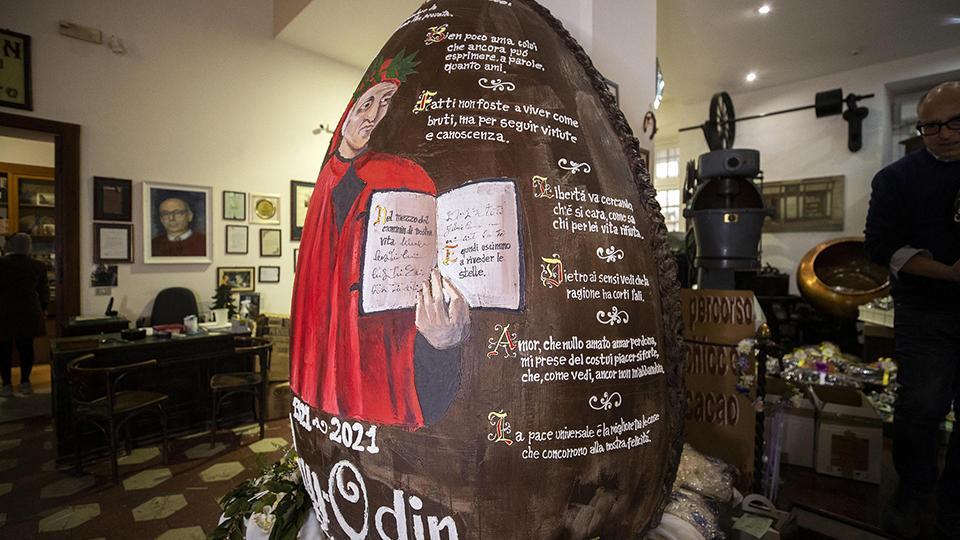 Ben poco ama colui
che ancora può
esprimere, a parole,
quanto ami.
Fatti non foste a viver come
bruti, ma per seguir virtute
e canoscenza.
Libertà va cercando,
ch'è sì cara, come sa
chi per lei vita rifiuta.
Dietro ai sensi vedi che la
ragione ha corti l'ali.
Amor, che nullo amato amar perdona,
mi prese del costui piacer sì forte,
che, come vedi, ancor non m'abbandona.
La pace universale è la migliore tra le cose
che concorrono alla nostra felicità.
Nel mezzo del
cammin di nostra
vita
E
quindi uscimmo
a riveder le
stelle.
1321 2021
Odin
percorso
onirico
cacao